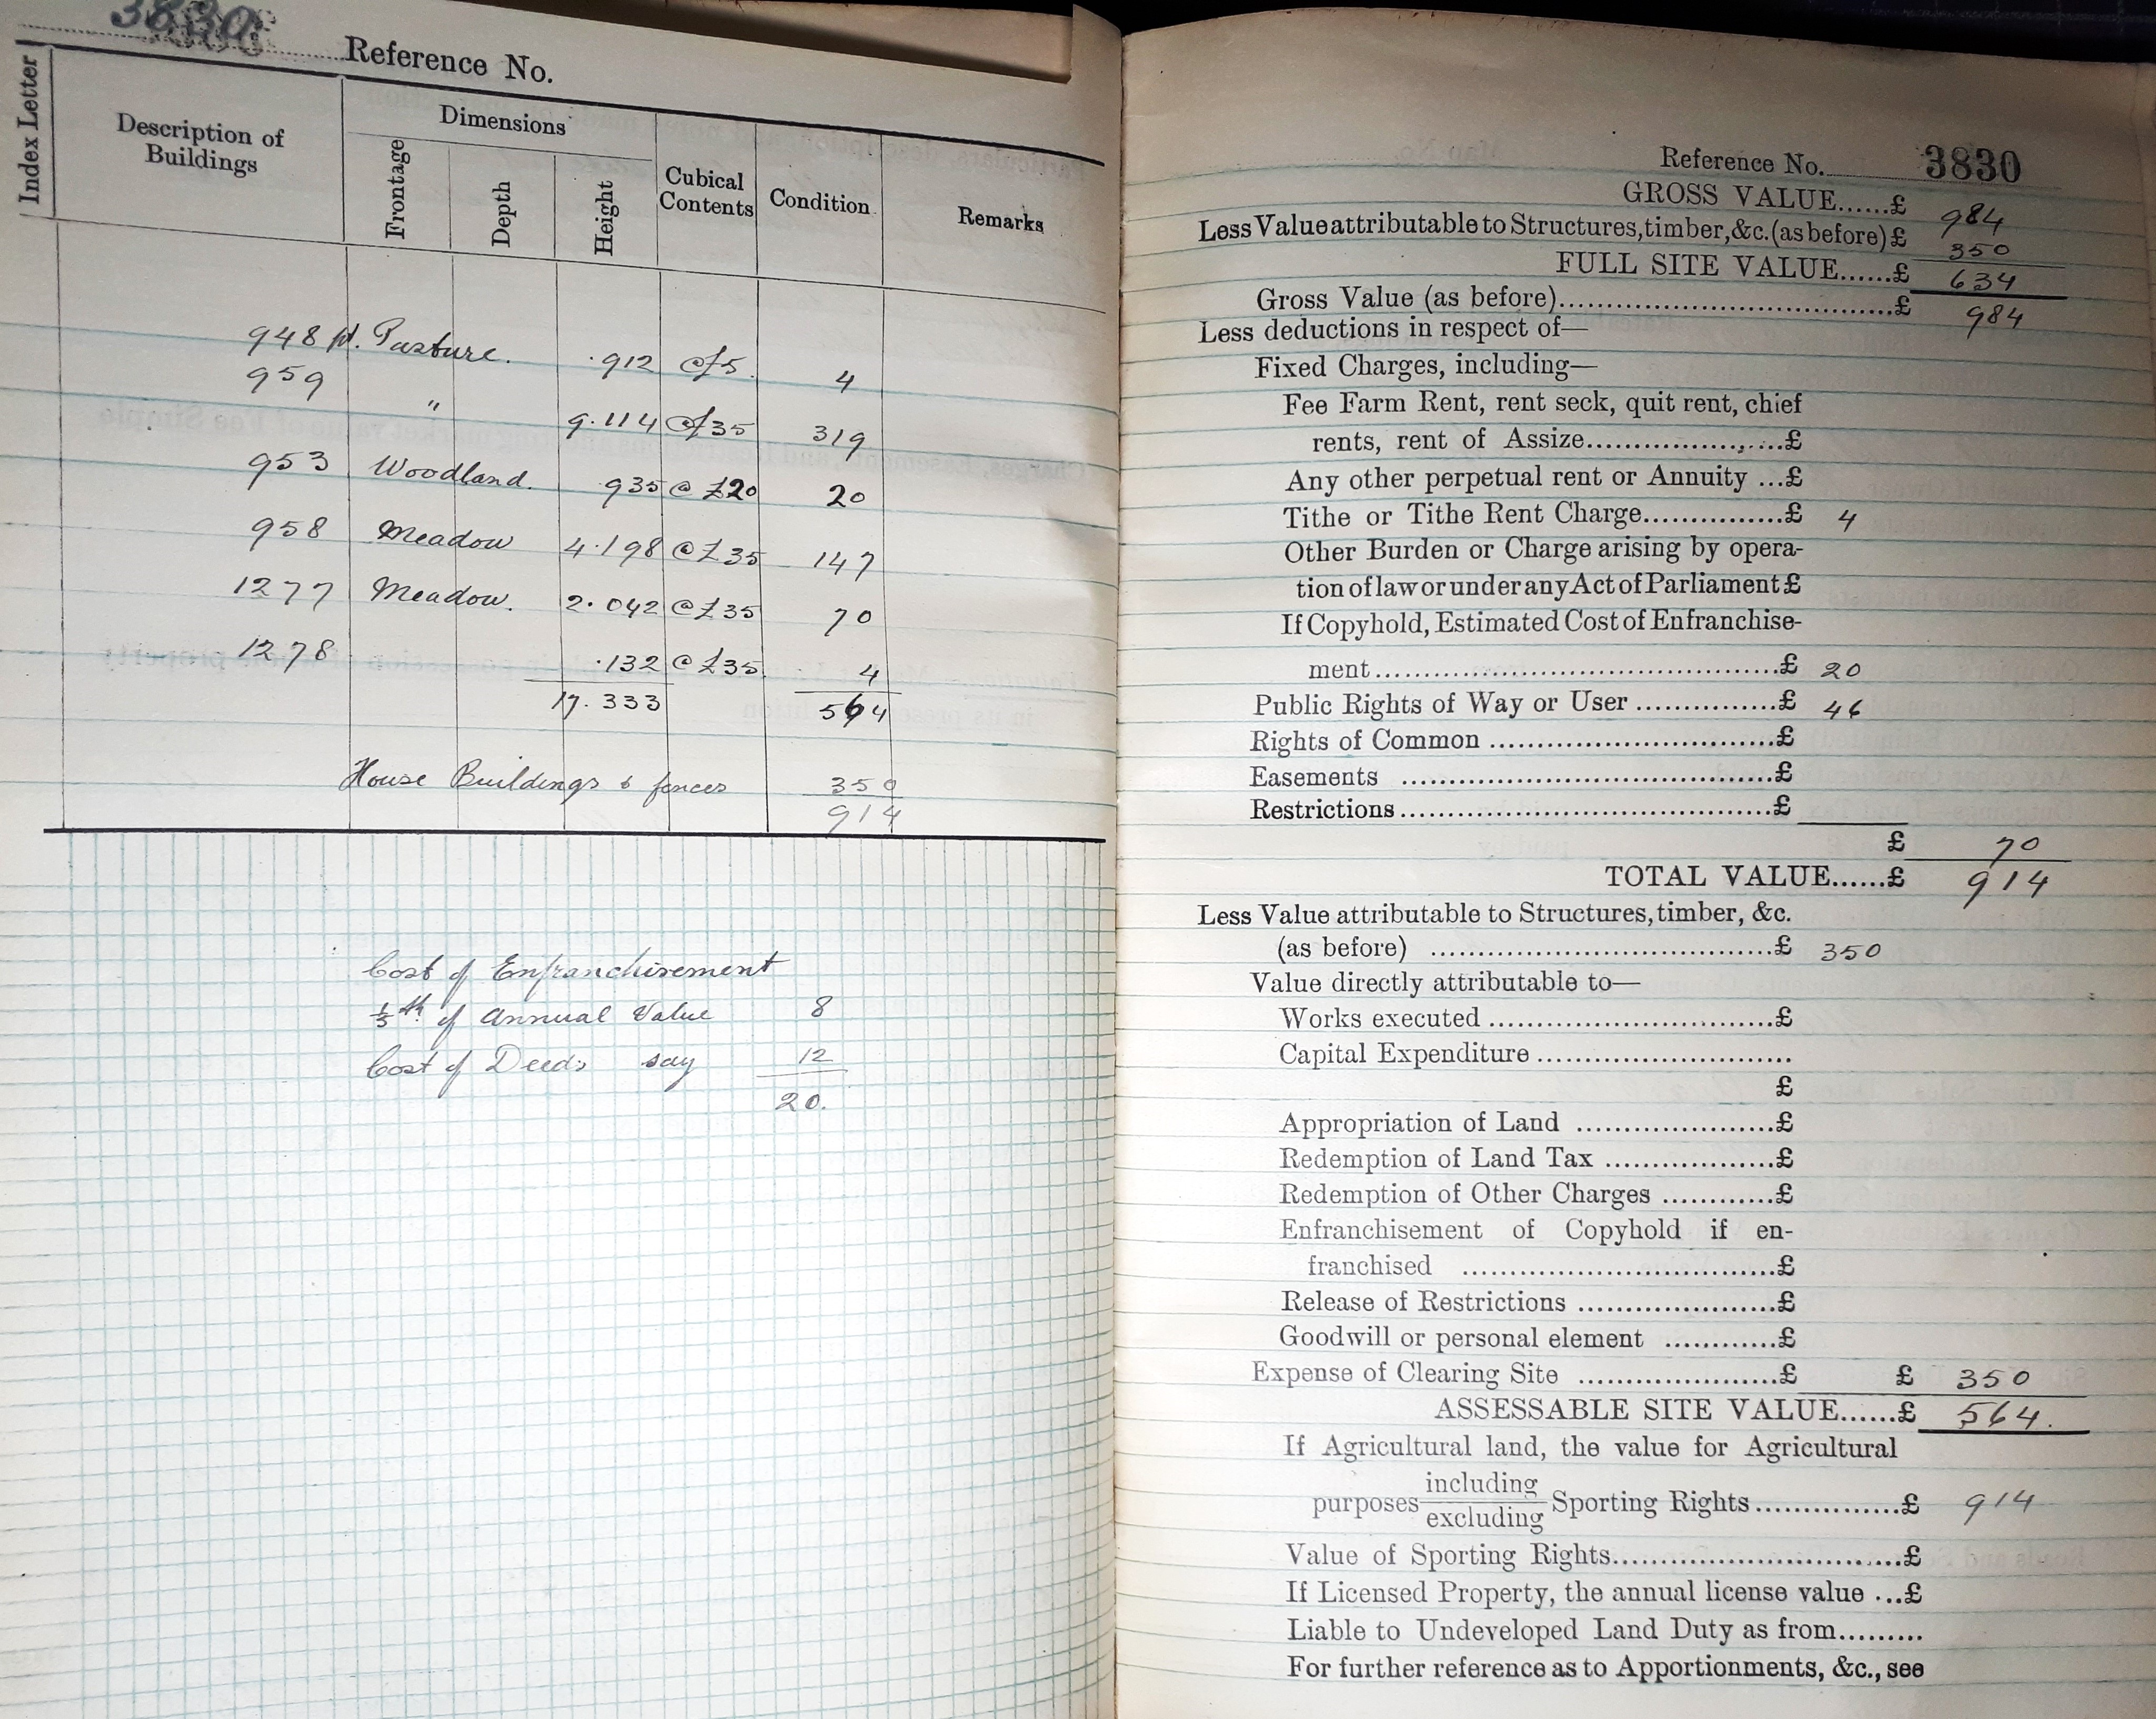 3830
Reference No.
Index Letter
Description of Buildings
Dimensions
Frontage
Depth
Height
Cubical Contents
Condition
Remarks
948 pt. Pasture. .912 @£5. 4
959 " 9.114 @£35 319
953 Woodland. .935 @ £20 20
958 Meadow 4.198 @ £35 147
1277 Meadow. 2.042 @ £35 70
1278 .132 @ £35. 4
17.333 564
House Buildings & fences 350
914
Cost of Enfranchisement
1/5th of Annual Value 8
Cost of Deeds say 12
20.
Reference No. 3830
GROSS VALUE......£ 984
Less Value attributable to Structures, timber, &c. (as before) £ 350
FULL SITE VALUE......£ 634
Gross Value (as before)..............................£ 984
Less deductions in respect of—
Fixed Charges, including—
Fee Farm Rent, rent seck, quit rent, chief
rents, rent of Assize....................£
Any other perpetual rent or Annuity ...£
Tithe or Tithe Rent Charge...............£ 4
Other Burden or Charge arising by opera-
tion of law or under any Act of Parliament £
If Copyhold, Estimated Cost of Enfranchise-
ment..............................£ 20
Public Rights of Way or User ...............£ 46
Rights of Common ..............................£
Easements ..............................£
Restrictions..............................£
£ 70
TOTAL VALUE......£ 914
Less Value attributable to Structures, timber, &c.
(as before) ..............................£ 350
Value directly attributable to—
Works executed ..............................£
Capital Expenditure ..............................
£
Appropriation of Land .....................£
Redemption of Land Tax ..................£
Redemption of Other Charges ............£
Enfranchisement of Copyhold if en-
franchised ..............................£
Release of Restrictions .....................£
Goodwill or personal element ............£
Expense of Clearing Site .....................£ £ 350
ASSESSABLE SITE VALUE......£ 564.
If Agricultural land, the value for Agricultural
purposes including/excluding Sporting Rights...............£ 914
Value of Sporting Rights..............................£
If Licensed Property, the annual license value ...£
Liable to Undeveloped Land Duty as from.........
For further reference as to Apportionments, &c., see